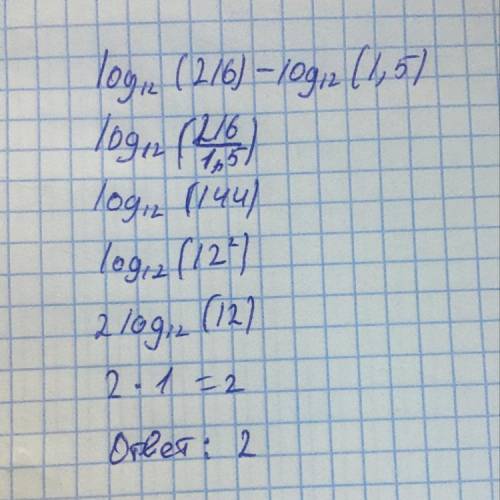 log₁₂ (216) − log₁₂ (1,5)
log₁₂ (216/1,5)
log₁₂ (144)
log₁₂ (12²)
2 log₁₂ (12)
2 · 1 = 2
Ответ: 2